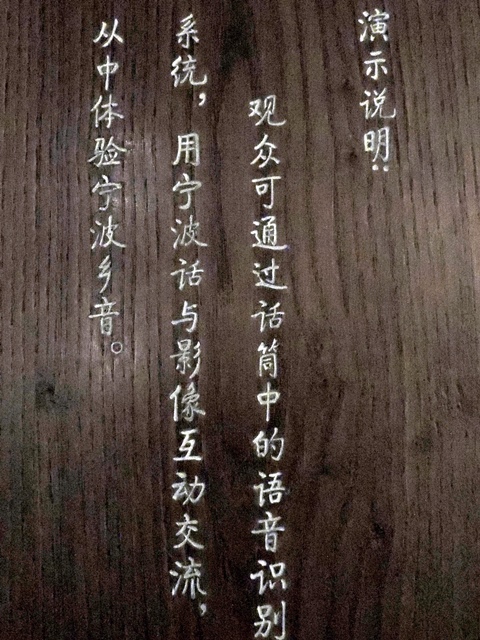 演示说明：
观众可通过话筒中的语音识别
系统，用宁波话与影像互动交流，
从中体验宁波乡音。